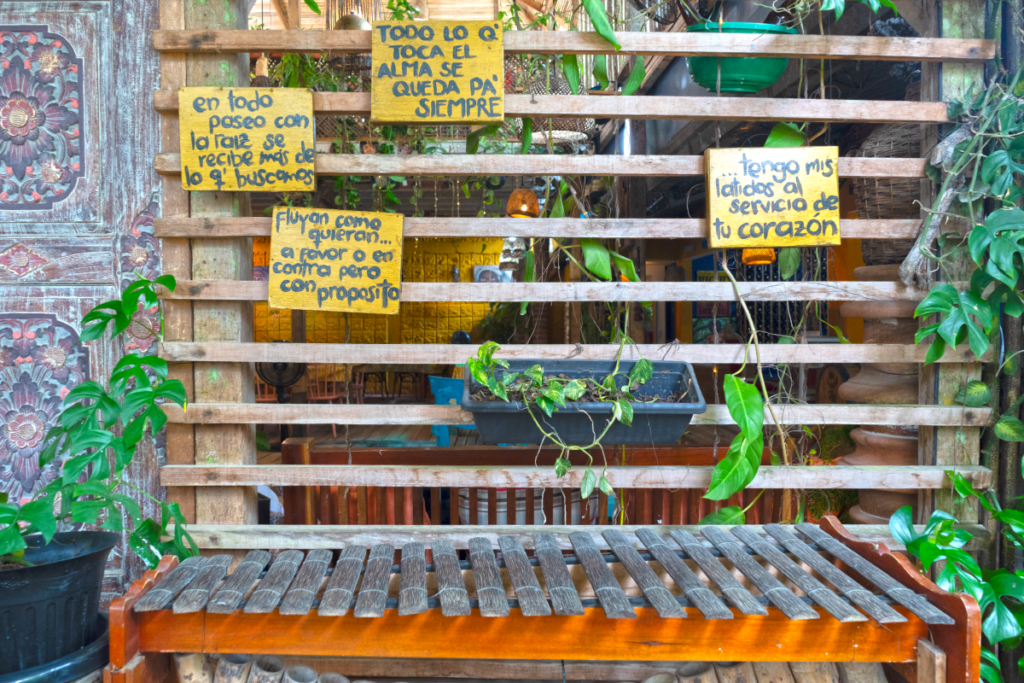 TODO LO Q'
TOCA EL
ALMA SE
QUEDA PA'
SIEMPRE
en todo
paseo con
la raiz se
recibe más de
lo q' buscamos
...tengo mis
latidos al
servicio de
tu corazón
Fluyan como
quieran...
a favor o en
contra pero
con proposito